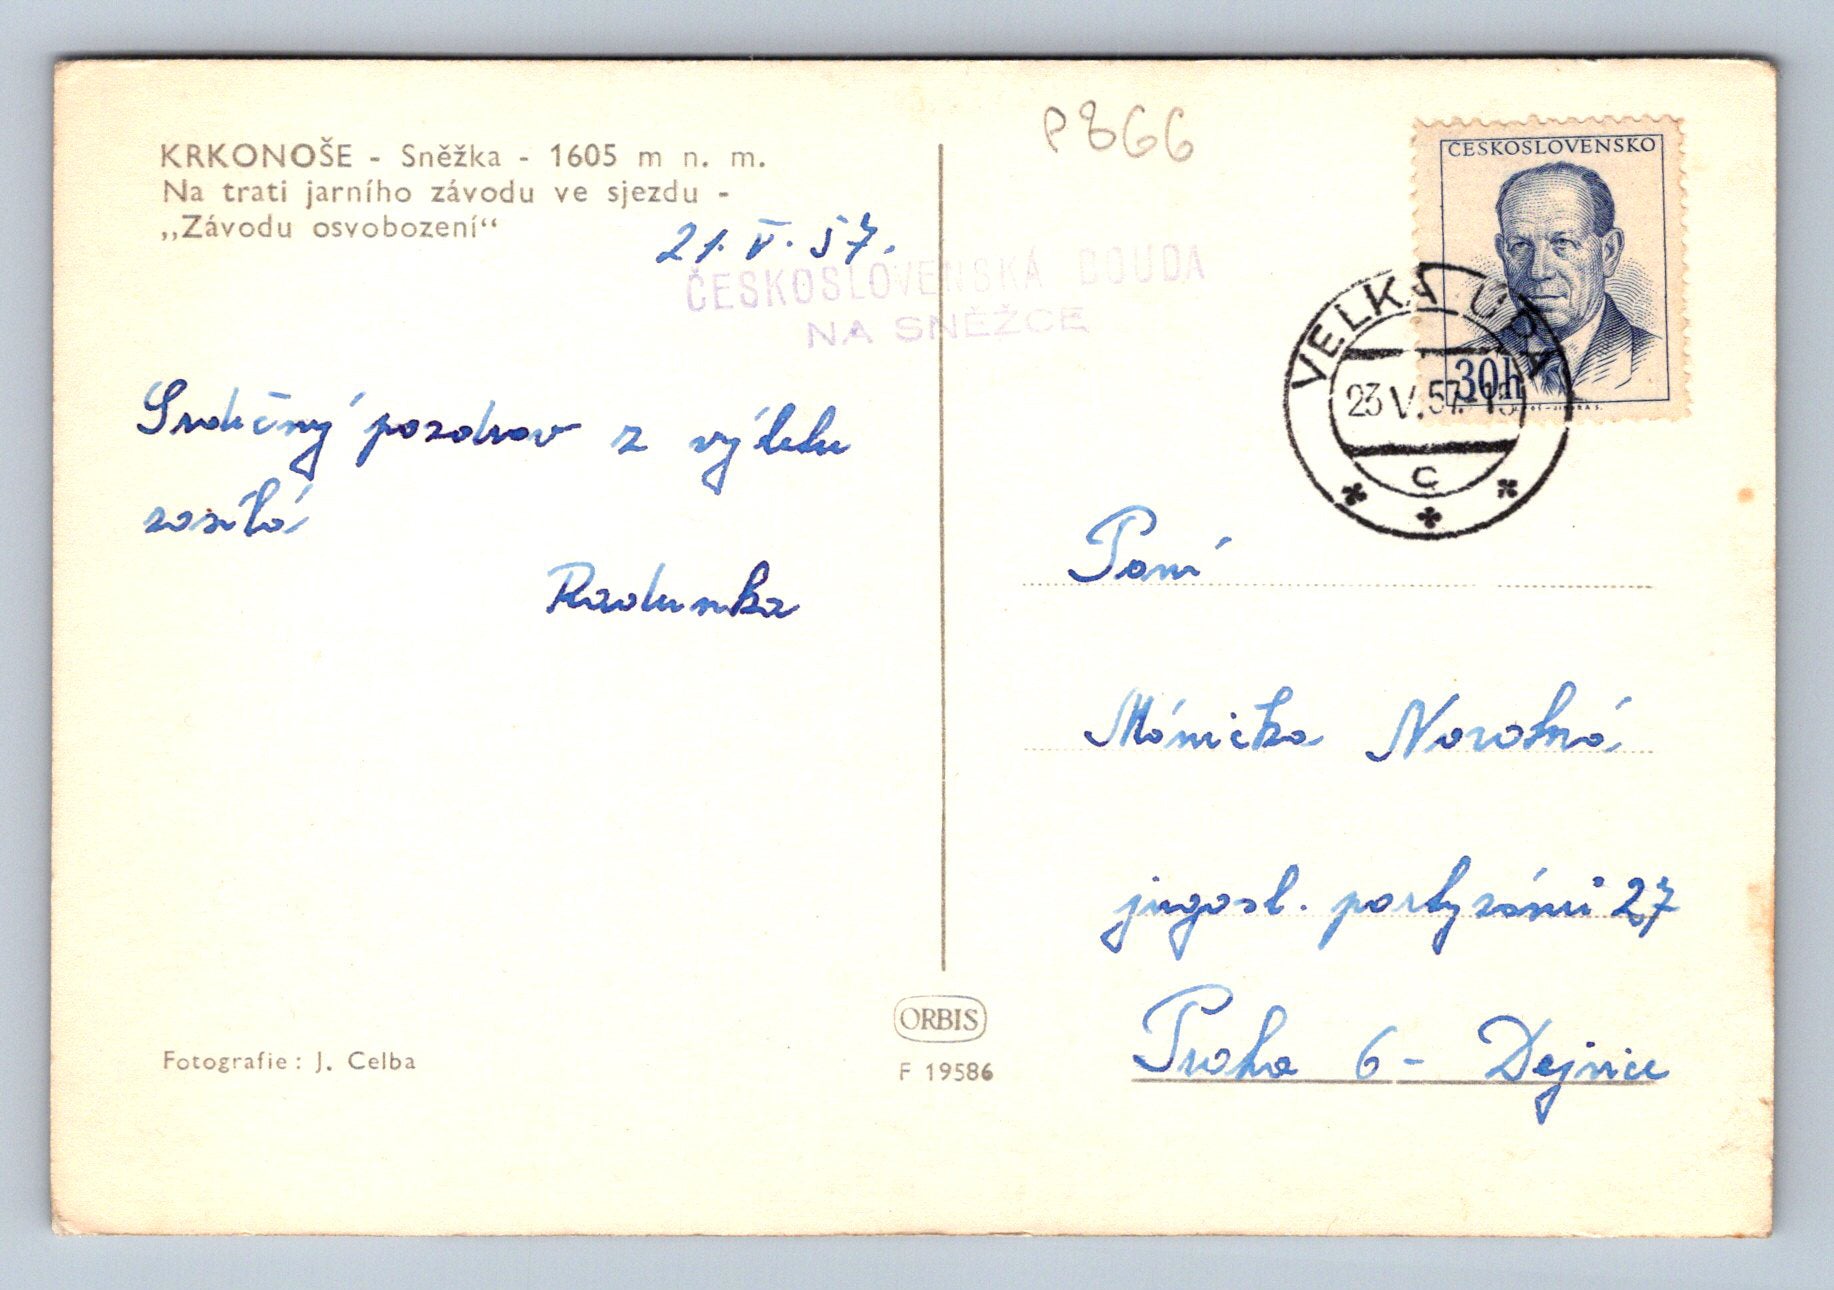 KRKONOŠE - Sněžka - 1605 m n. m.
Na trati jarního závodu ve sjezdu -
„Závodu osvobození“
21. V. 57.
ČESKOSLOVENSKÁ BOUDA
NA SNĚŽCE
Srdečný pozdrav z výletu
zasílá
Radunka
Fotografie: J. Celba
ORBIS
F 19586
P866
ČESKOSLOVENSKO
30h
VELKÁ ÚPA
23 V. 57
C
Paní
Mánička
jugosl. partyzánů 27
Praha 6 - Dejvice